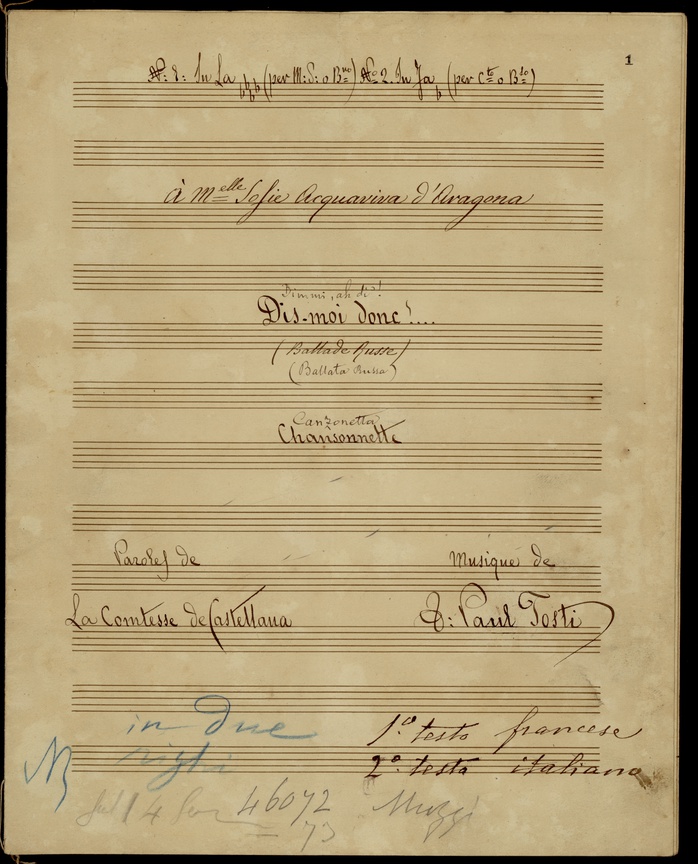 1
N°: 1: In La bbb (per M: S: o B.no) N° 2. In Fa b (per C.to o B.so)
À M.elle Sofie Acquaviva d'Aragona
Dimmi, ah di'!
Dis-moi donc!....
(Ballade Russe)
(Ballata Russa)
Canzonetta
Chansonnette
Paroles de
Musique de
La Comtesse de Castellana
F: Paul Tosti
in due
righi
NB
1°: testo francese
2°: testo italiano
14 46072
73
Muzzi